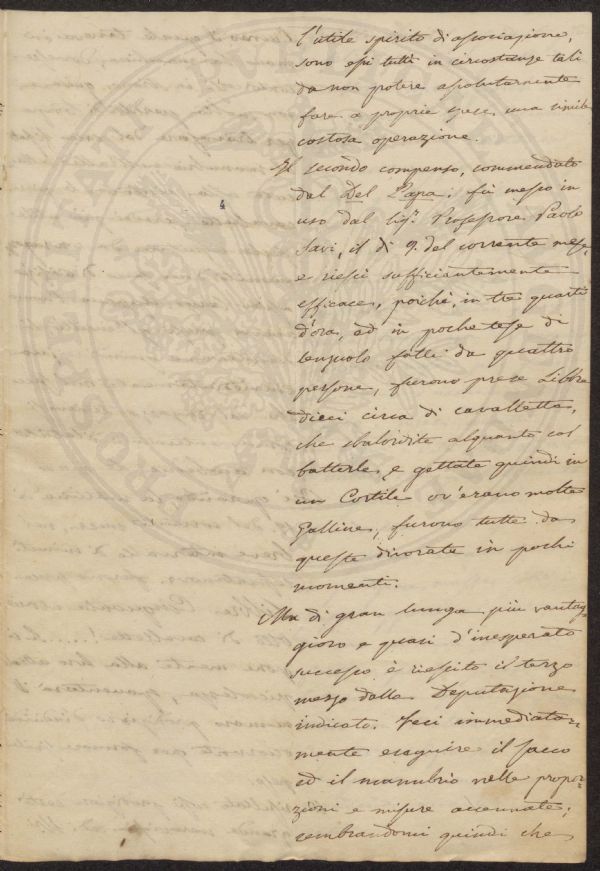 l'utile spirito di associazione,
sono essi tutti in circostanze tali
da non potere assolutamente
fare a proprie spese una simile
costosa operazione.
Il secondo compenso, commendato
dal Del Papa, fù messo in
uso dal Sigr. Professore Paolo
Savi, il dì 9. del corrente mese
e riescì sufficientemente
efficace, poichè, in tre quarti
d'ora, ad in poche tese di
lenzuolo fatte da quattro
persone, furono prese Libbre
dieci circa di cavallette,
che sbalordite alquanto col
batterle, e gettate quindi in
un Cortile ov'erano molte
Galline, furono tutte da
queste divorate in pochi
momenti.
Ma di gran lunga più vantag-
gioso e quasi d'insperato
successo è riescito il terzo
mezzo dalla Deputazione
indicato. Feci immediata-
mente eseguire il sacco
ed il manubrio nelle propor-
zioni e misure accennate;
sembrandomi quindi che